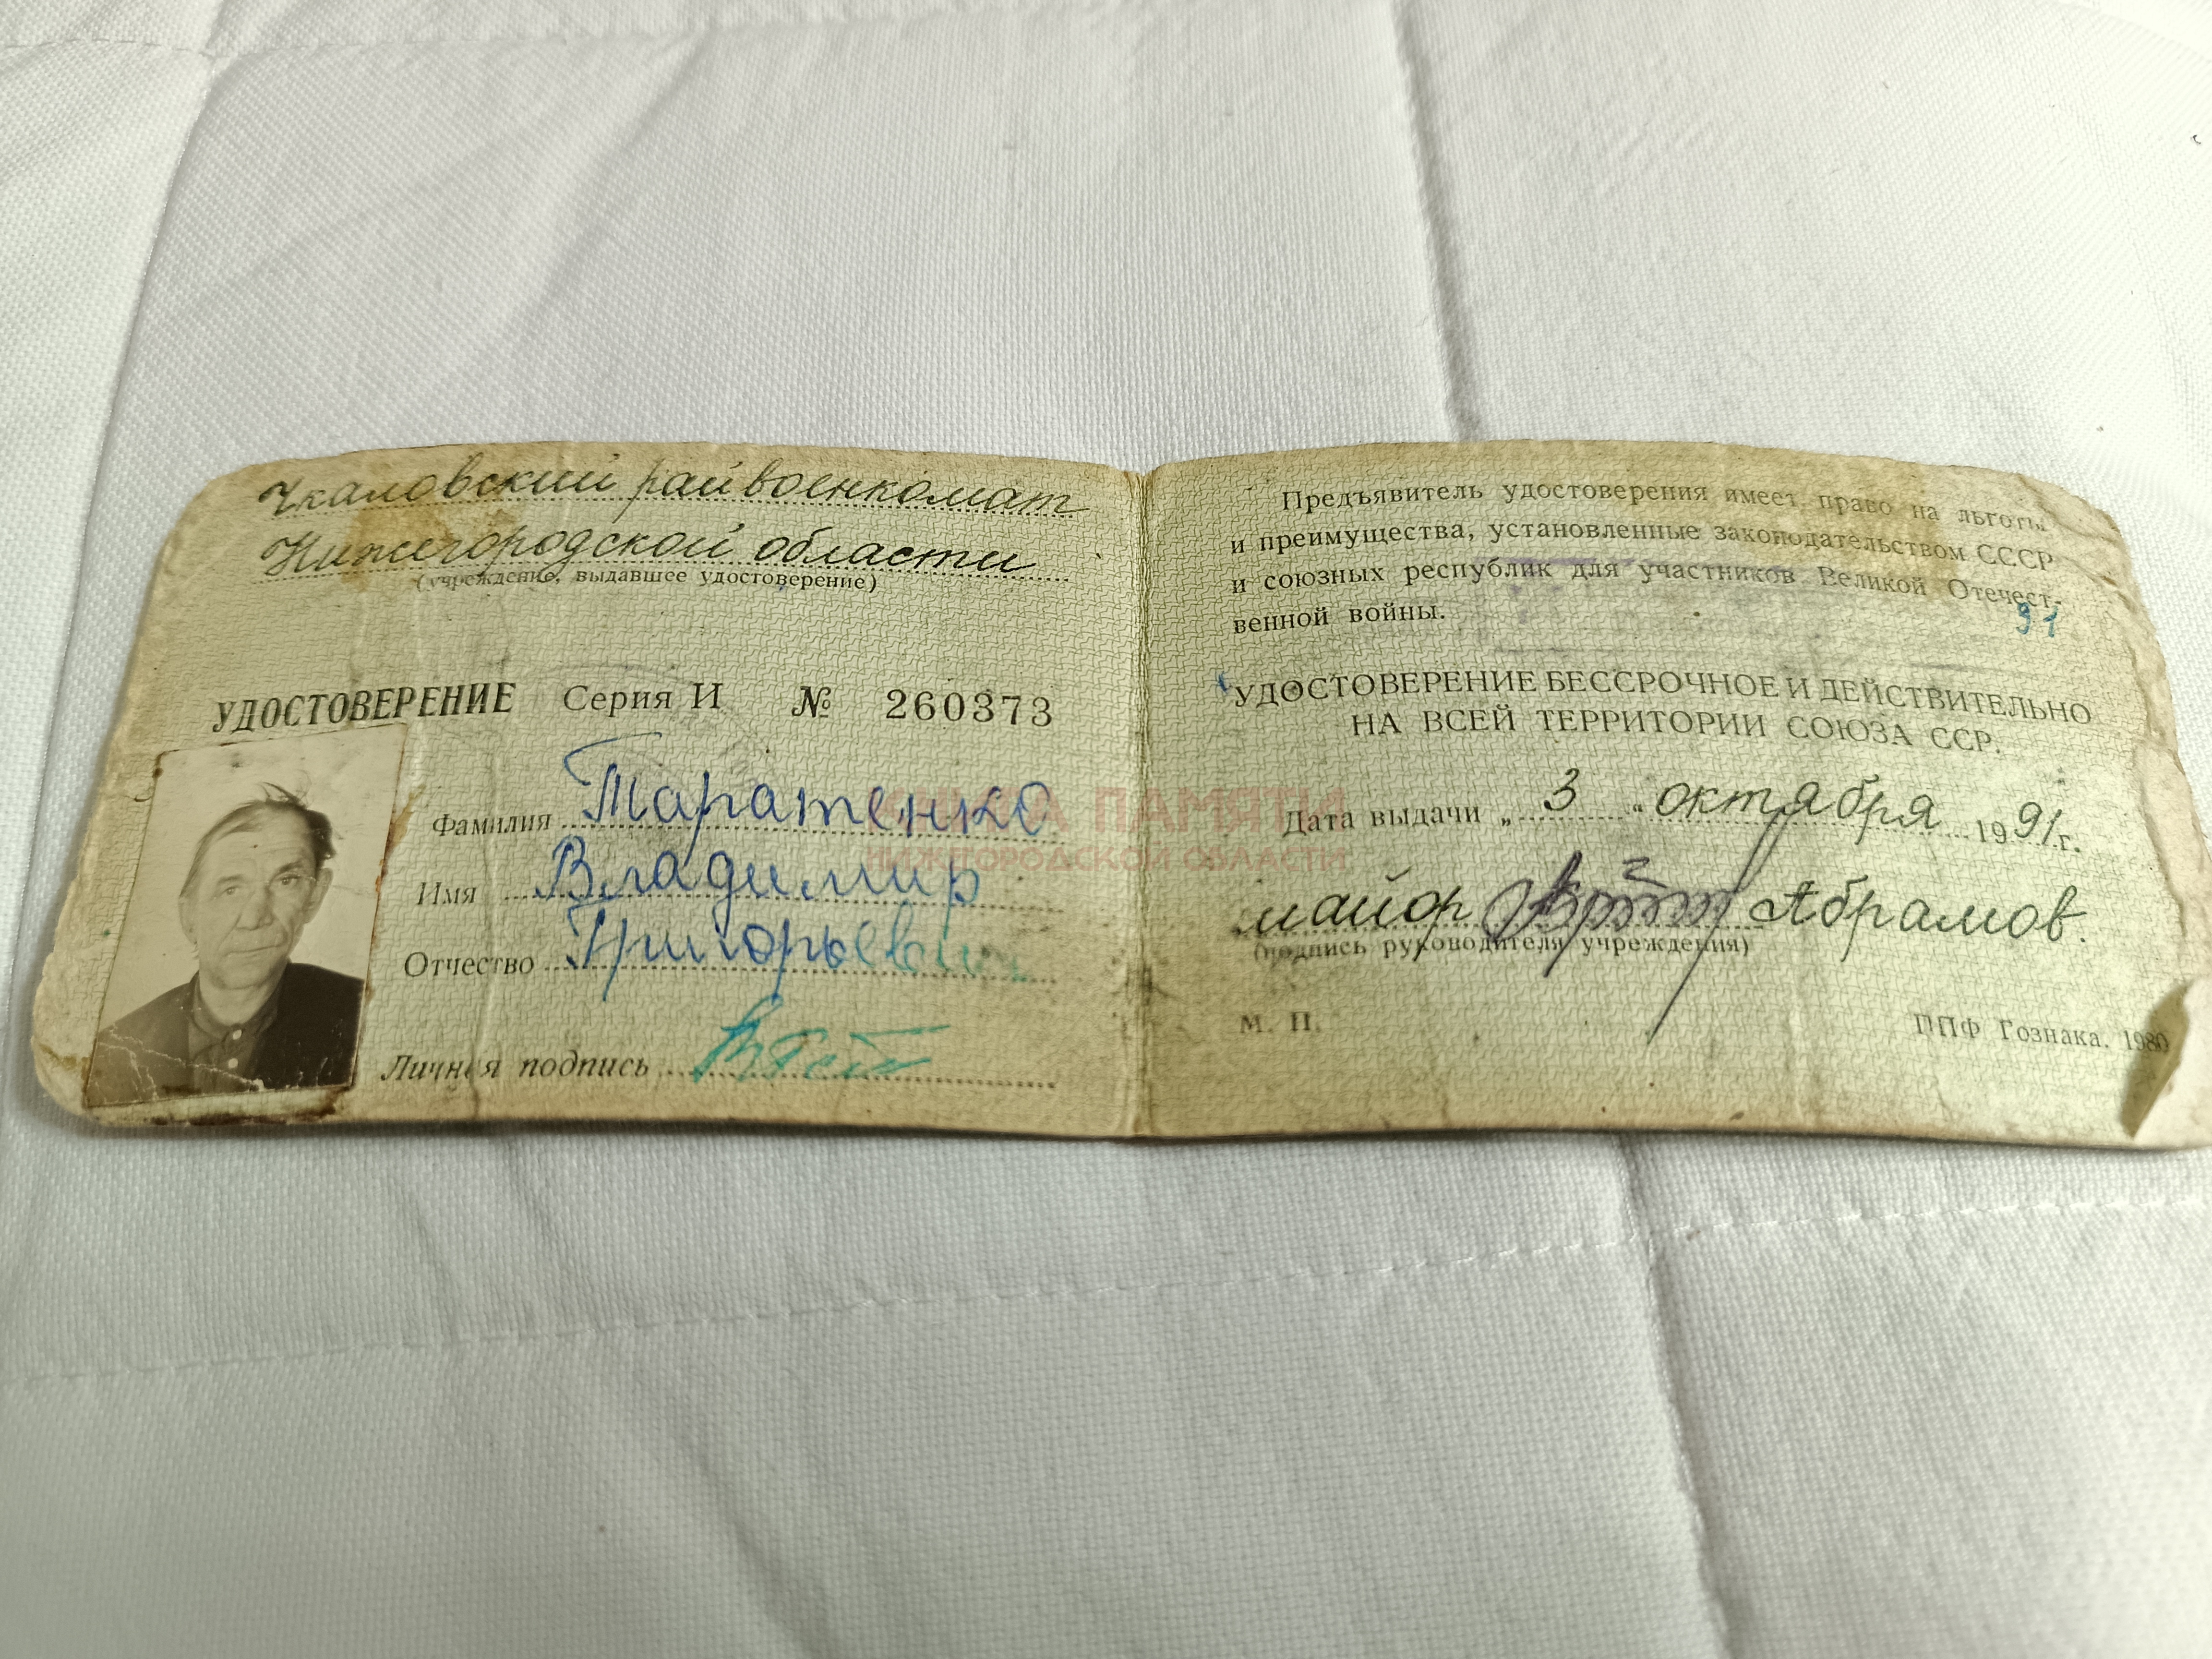 Чкаловский райвоенкомат
Нижегородской области
(учреждение, выдавшее удостоверение)
УДОСТОВЕРЕНИЕ Серия И № 260373
Фамилия Таратенко
Имя Владимир
Отчество Григорьевич
Личная подпись
Предъявитель удостоверения имеет право на льготы
и преимущества, установленные законодательством СССР
и союзных республик для участников Великой Отечест-
венной войны.
91
УДОСТОВЕРЕНИЕ БЕССРОЧНОЕ И ДЕЙСТВИТЕЛЬНО
НА ВСЕЙ ТЕРРИТОРИИ СОЮЗА ССР.
Дата выдачи „ 3 “ октября 1991 г.
майор Абрамов.
(подпись руководителя учреждения)
М. П.
ППФ Гознака. 1980
КНИГА ПАМЯТИ
НИЖЕГОРОДСКОЙ ОБЛАСТИ